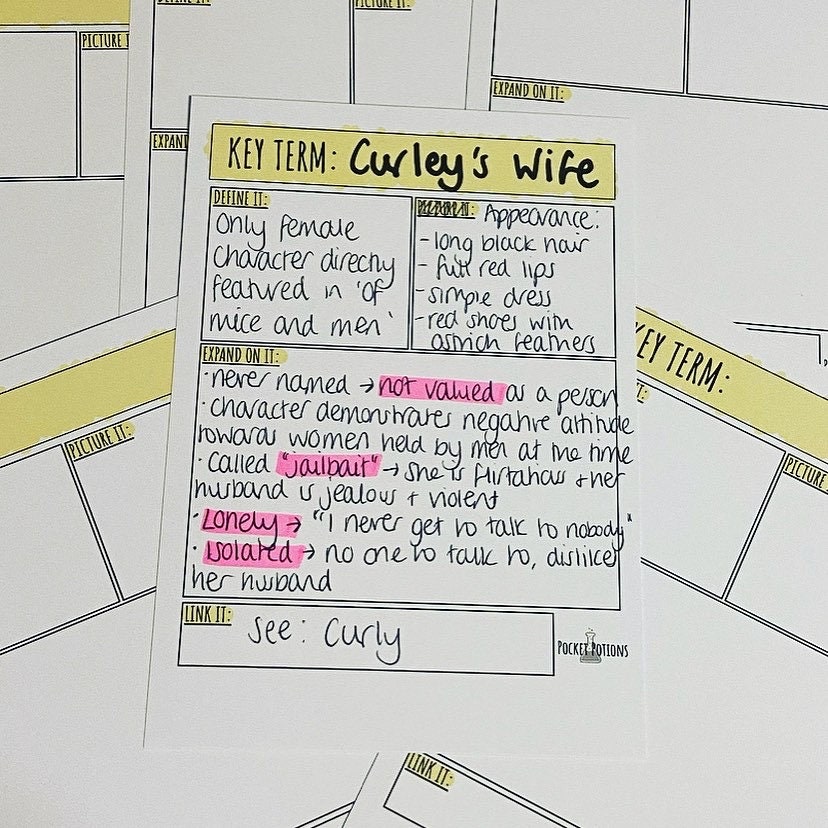 DEFINE IT:
PICTURE IT:
PICTURE I
EXPAND ON IT:
EXPAN
KEY TERM: Curley's Wife
DEFINE IT:
Only female
character directly
featured in 'Of
mice and men'
Appearance:
- long black hair
- full red lips
- simple dress
- red shoes with
ostrich feathers
EXPAND ON IT:
· never named → not valued as a person
· character demonstrates negative attitude
towards women held by men at the time
· called "jailbait" → she is flirtatious + her
husband is jealous + violent
· Lonely → "I never get to talk to nobody"
· isolated → no one to talk to, dislikes
her husband
LINK IT:
see: Curly
POCKET POTIONS
KEY TERM:
IT:
PICTURE IT:
PICTURE
LINK IT: